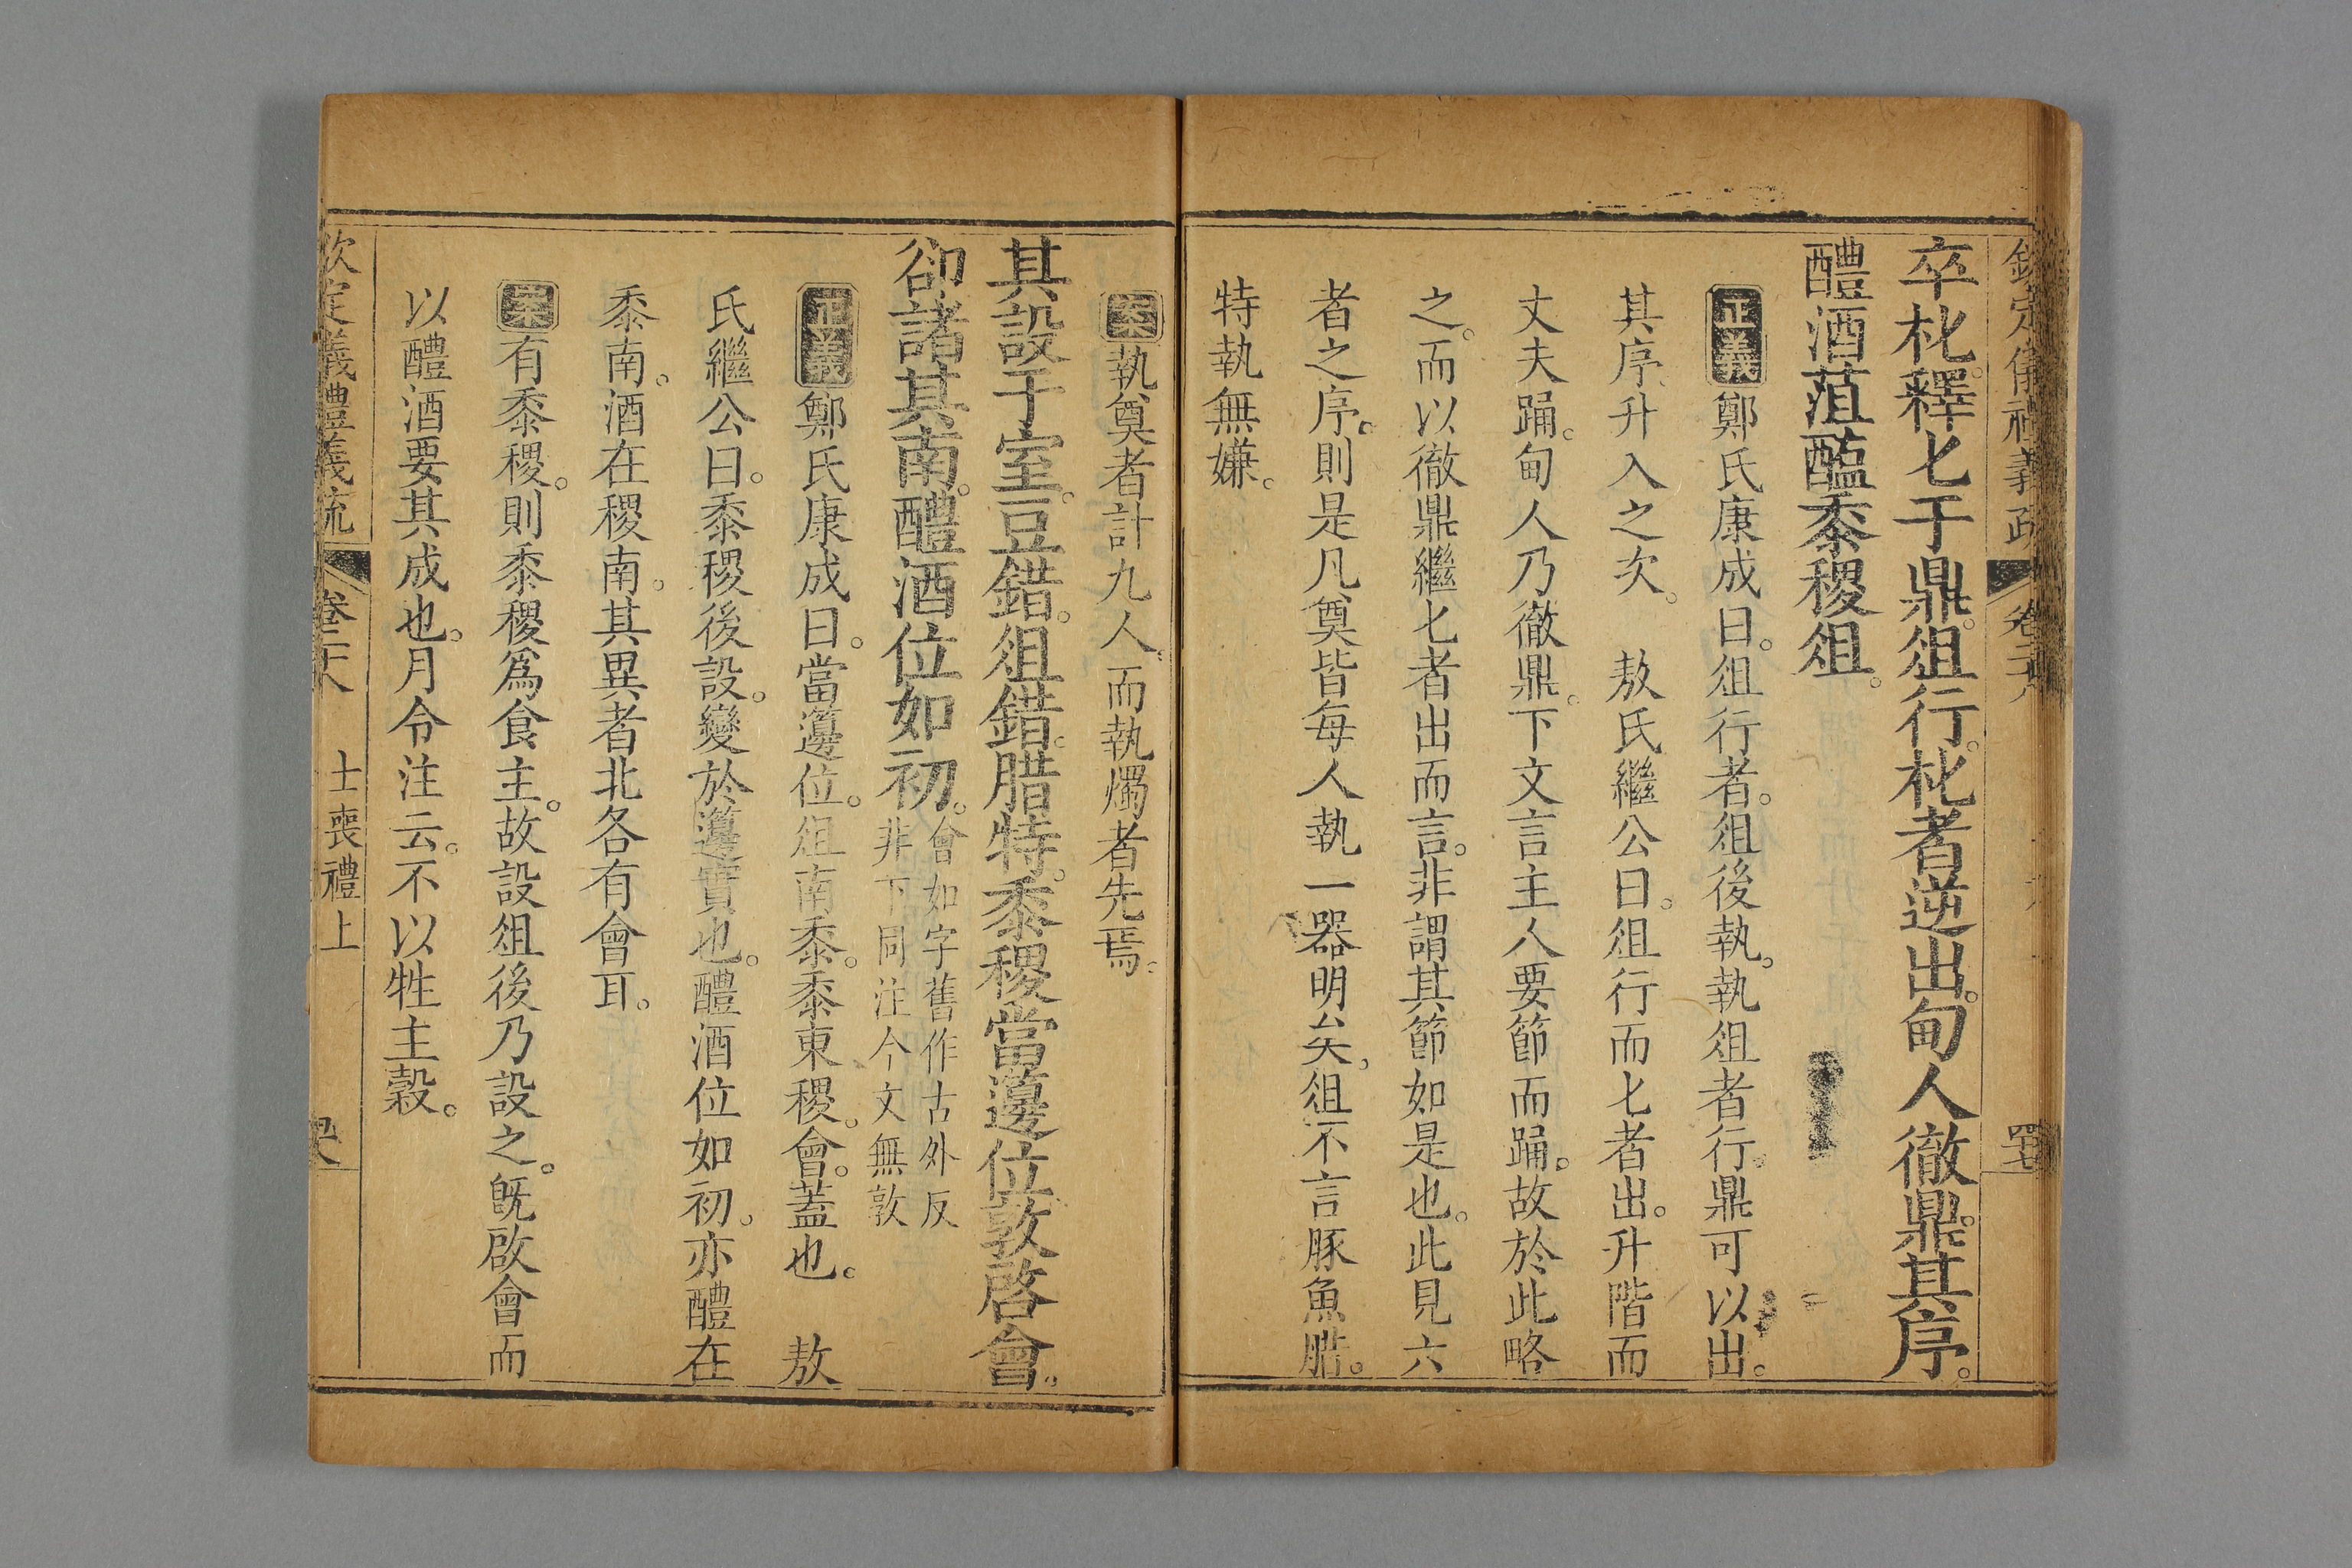 欽定儀禮義疏 卷二十八 罕七
卒朼。釋匕于鼎。俎行。朼者逆出。甸人徹鼎。其序。
醴酒菹醢黍稷俎。
正義鄭氏康成曰。俎行者。俎後執。執俎者行。鼎可以出。
其序、升入之次。 敖氏繼公曰。俎行而匕者出。升階而
丈夫踊。甸人乃徹鼎。下文言主人要節而踊。故於此略
之。而以徹鼎繼匕者出而言。非謂其節如是也。此見六
者之序。則是凡奠皆每人執一器明矣。俎不言豚魚腊。
特執無嫌。
案執奠者計九人、而執燭者先焉。
其設于室。豆錯。俎錯。腊特。黍稷當籩位。敦啓會。
卻諸其南。醴酒位如初。會如字舊作古外反
非下同注今文無敦
正義鄭氏康成曰。當籩位。俎南黍。黍東稷。會。蓋也。 敖
氏繼公曰。黍稷後設。變於籩實也。醴酒位如初。亦醴在
黍南。酒在稷南。其異者北各有會耳。
案有黍稷。則黍稷爲食主。故設俎後乃設之。旣啟會而
以醴酒要其成也。月令注云。不以牲主穀。
欽定儀禮義疏 卷二十八 士喪禮上